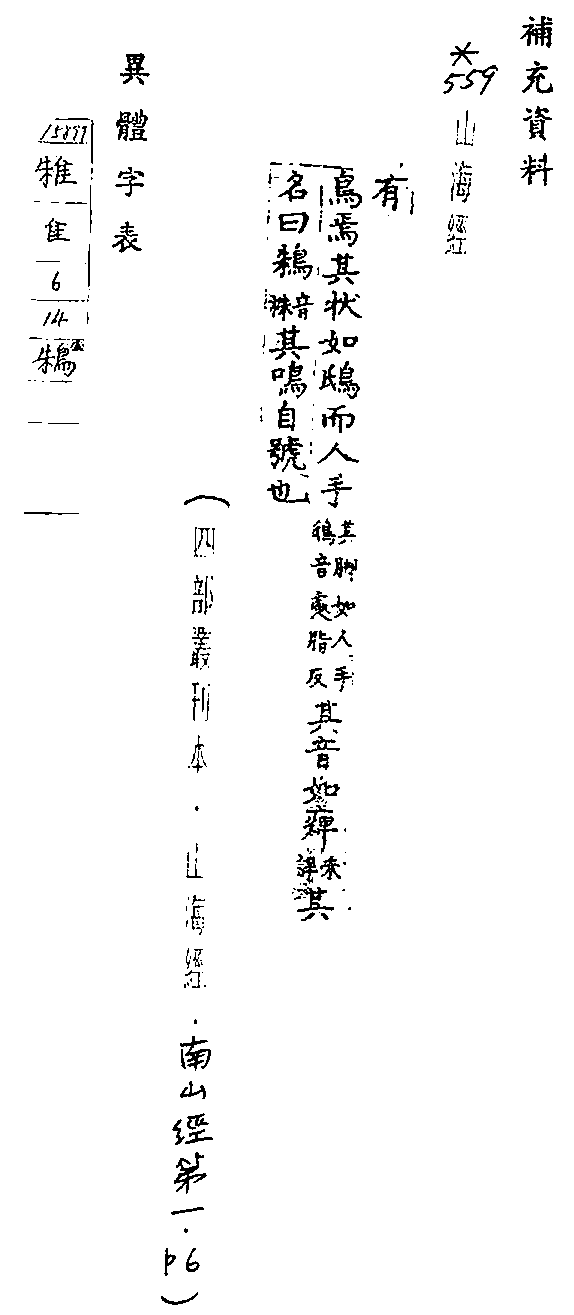 補充資料
*559 山海經
有
鳥焉其状如鴟而人手
其脚如人手
鴟音處脂反
其音如痺
未
詳
其
名曰鴸
音
株
其鳴自號也
(四部叢刊本．山海經．南山經第一．p6)
異體字表
隹
6
14
鴸